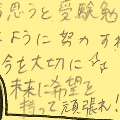 思うと受験勉
ように努力すれ
今を大切に
未来に希望を
持って頑張れ!